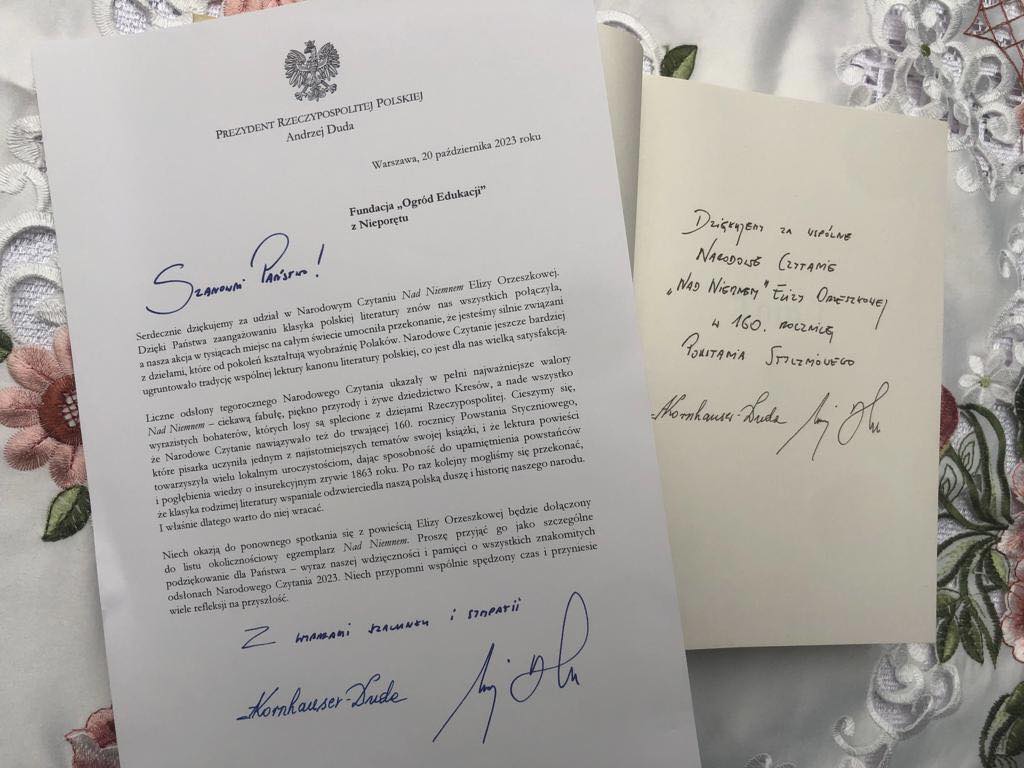 PREZYDENT RZECZYPOSPOLITEJ POLSKIEJ
Andrzej Duda
Warszawa, 20 października 2023 roku
Fundacja „Ogród Edukacji”
z Nieporętu
Szanowni Państwo!
Serdecznie dziękujemy za udział w Narodowym Czytaniu Nad Niemnem Elizy Orzeszkowej.
Dzięki Państwa zaangażowaniu klasyka polskiej literatury znów nas wszystkich połączyła,
a nasza akcja w tysiącach miejsc na całym świecie umocniła przekonanie, że jesteśmy silnie związani
z dziełami, które od pokoleń kształtują wyobraźnię Polaków. Narodowe Czytanie jeszcze bardziej
ugruntowało tradycję wspólnej lektury kanonu literatury polskiej, co jest dla nas wielką satysfakcją.
Liczne odsłony tegorocznego Narodowego Czytania ukazały w pełni najważniejsze walory
Nad Niemnem – ciekawą fabułę, piękno przyrody i żywe dziedzictwo Kresów, a nade wszystko
wyrazistych bohaterów, których losy są splecione z dziejami Rzeczypospolitej. Cieszymy się,
że Narodowe Czytanie nawiązywało też do trwającej 160. rocznicy Powstania Styczniowego,
które pisarka uczyniła jednym z najistotniejszych tematów swojej książki, i że lektura powieści
towarzyszyła wielu lokalnym uroczystościom, dając sposobność do upamiętnienia powstańców
i pogłębienia wiedzy o insurekcyjnym zrywie 1863 roku. Po raz kolejny mogliśmy się przekonać,
że klasyka rodzimej literatury wspaniale odzwierciedla naszą polską duszę i historię naszego narodu.
I właśnie dlatego warto do niej wracać.
Niech okazją do ponownego spotkania się z powieścią Elizy Orzeszkowej będzie dołączony
do listu okolicznościowy egzemplarz Nad Niemnem. Proszę przyjąć go jako szczególne
podziękowanie dla Państwa – wyraz naszej wdzięczności i pamięci o wszystkich znakomitych
odsłonach Narodowego Czytania 2023. Niech przypomni wspólnie spędzony czas i przyniesie
wiele refleksji na przyszłość.
Z wyrazami szacunku i sympatii
Kornhauser-Duda
Dziękujemy za wspólne
Narodowe Czytanie
„Nad Niemnem” Elizy Orzeszkowej
w 160. rocznicę
Powstania Styczniowego
Kornhauser-Duda